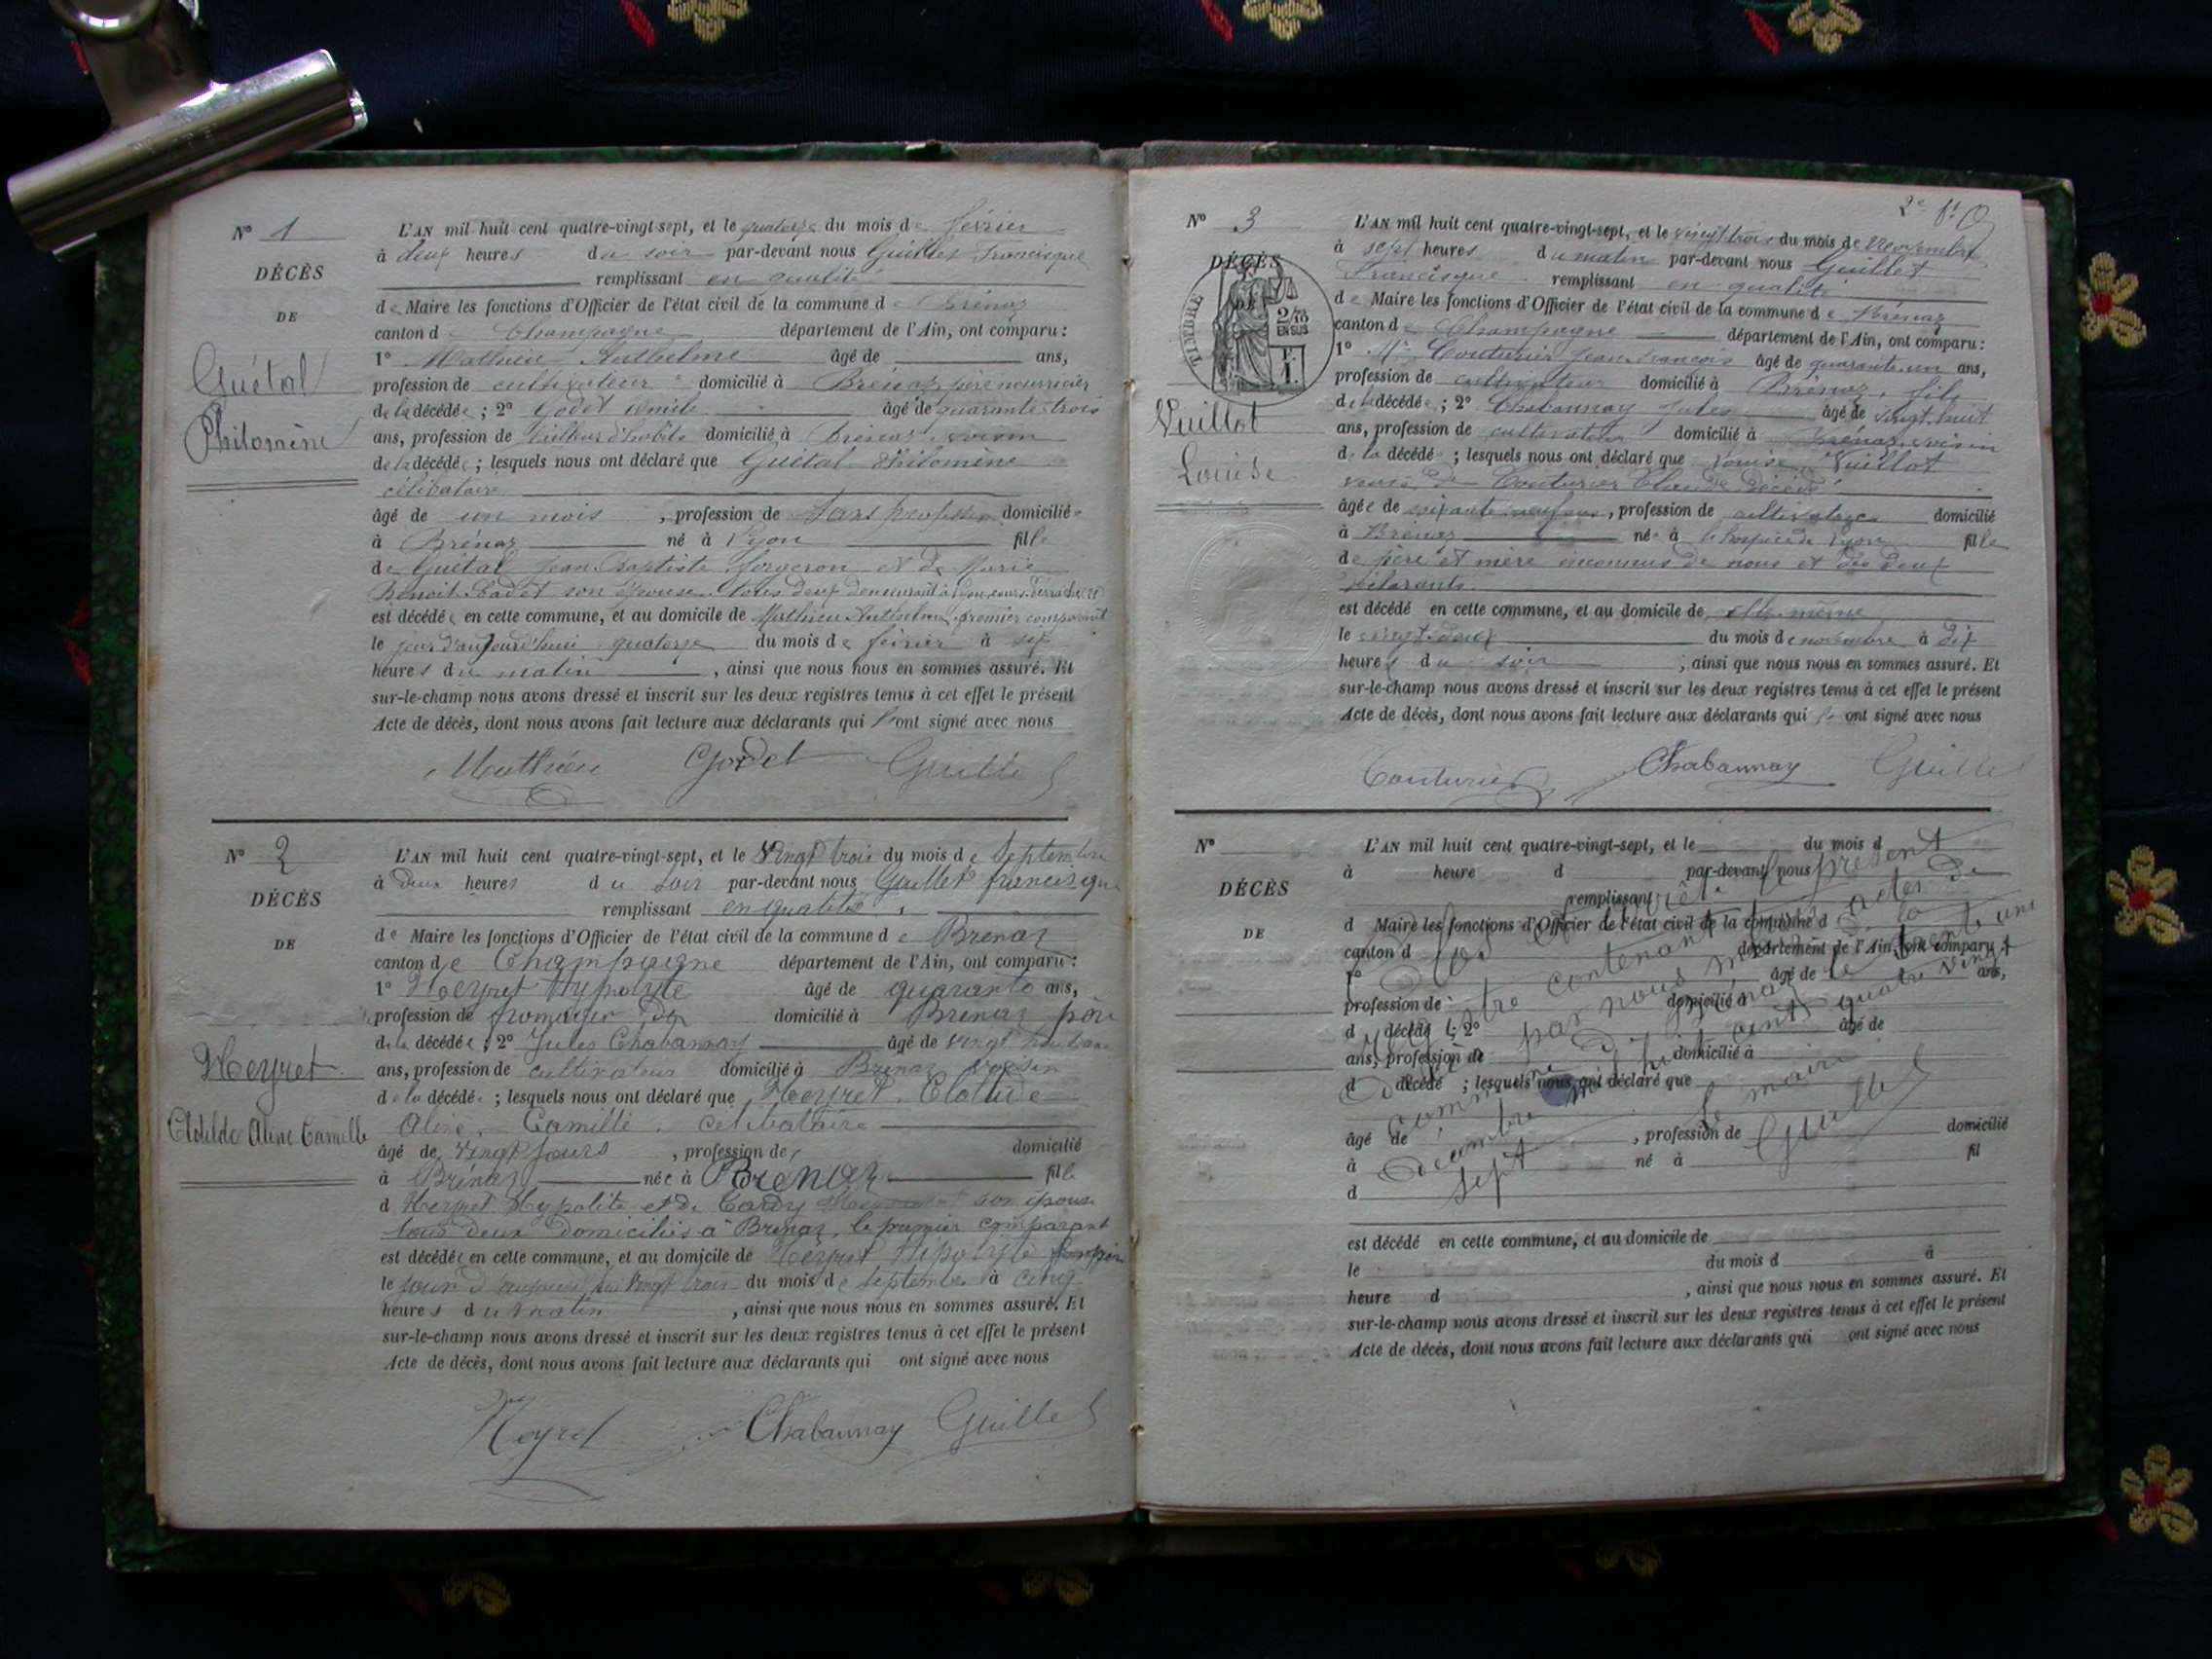 N° 1
DÉCÈS
DE
Guétal
Philomène
L'AN mil huit cent quatre-vingt-sept, et le quatorze du mois de février
à deux heures du soir par-devant nous Guillet Francisque
remplissant en qualité
de Maire les fonctions d'Officier de l'état civil de la commune de Brénaz
canton de Champagne département de l'Ain, ont comparu :
1° Mathieu Anthelme âgé de ans,
profession de cultivateur domicilié à Brénaz, père nourricier
de la décédée ; 2° Godet Emile âgé de quarante-trois
ans, profession de tailleur d'habits domicilié à Brénaz, voisin
de la décédée ; lesquels nous ont déclaré que Guétal Philomène
célibataire
âgé de un mois , profession de sans profession domiciliée
à Brénaz né à Lyon fille
de Guétal Jean-Baptiste forgeron et de Marie
Benoit Cadet son épouse tous deux demeurant à Lyon, cours
est décédée en cette commune, et au domicile de Mathieu Anthelme, premier comparant
le jour d'aujourd'hui quatorze du mois de février à sept
heures du matin , ainsi que nous nous en sommes assuré. Et
sur-le-champ nous avons dressé et inscrit sur les deux registres tenus à cet effet le présent
Acte de décès, dont nous avons fait lecture aux déclarants qui l'ont signé avec nous
Mathieu Godet Guillet
N° 2
DÉCÈS
DE
Heyret
Clotilde Aline Camille
L'AN mil huit cent quatre-vingt-sept, et le vingt trois du mois de septembre
à deux heures du soir par-devant nous Guillet francisque
remplissant en qualité
de Maire les fonctions d'Officier de l'état civil de la commune de Brénaz
canton de Champagne département de l'Ain, ont comparu :
1° Heyret Hypolyte âgé de quarante ans,
profession de fromager domicilié à Brénaz père
de la décédée ; 2° Jules Chabannay âgé de vingt huit ans
ans, profession de cultivateur domicilié à Brénaz voisin
de la décédée ; lesquels nous ont déclaré que Heyret Clotilde
Aline, Camille, celibataire
âgé de vingt jours , profession de domicilié
à Brénaz née à Brénaz fille
d Heyret Hypolite et de Cardy son épouse
tous deux domiciliés à Brénaz, le premier comparant
est décédée en cette commune, et au domicile de Heyret Hipolyte son père
le jour d'aujourd'hui vingt trois du mois de septembre à cinq
heures du matin , ainsi que nous nous en sommes assuré. Et
sur-le-champ nous avons dressé et inscrit sur les deux registres tenus à cet effet le présent
Acte de décès, dont nous avons fait lecture aux déclarants qui ont signé avec nous
Heyret Chabannay Guillet
2e ft
N° 3
DÉCÈS
DE
TIMBRE
2/10
EN SUS
F.
1.
Vuillot
Louise
L'AN mil huit cent quatre-vingt-sept, et le vingt trois du mois de novembre
à sept heures du matin par-devant nous Guillet
Francisque remplissant en qualité
de Maire les fonctions d'Officier de l'état civil de la commune de Brénaz
canton de Champagne département de l'Ain, ont comparu :
1° Mr Couturier Jean-François âgé de quarante-un ans,
profession de cultivateur domicilié à Brénaz, fils
de la décédée ; 2° Chabannay Jules âgé de vingt-huit
ans, profession de cultivateur domicilié à Brénaz, voisin
de la décédée ; lesquels nous ont déclaré que Louise Vuillot
veuve de Couturier Claude décédé
âgée de soixante-neuf ans , profession de cultivatrice domicilié
à Brénaz née à l'hospice de Lyon fille
de père et mère inconnus de nous et des deux
déclarants
est décédé en cette commune, et au domicile de elle-même
le vingt-deux du mois de novembre à dix
heures du soir , ainsi que nous nous en sommes assuré. Et
sur-le-champ nous avons dressé et inscrit sur les deux registres tenus à cet effet le présent
Acte de décès, dont nous avons fait lecture aux déclarants qui ont signé avec nous
Couturier Chabannay Guillet
N°
DÉCÈS
DE
L'AN mil huit cent quatre-vingt-sept, et le du mois d
à heure d par-devant nous
remplissant
d Maire les fonctions d'Officier de l'état civil de la commune d
canton d département de l'Ain, ont comparu :
1° âgé de ans,
profession de domicilié à
d décédé ; 2° âgé de
ans, profession de domicilié à
d décédé ; lesquels nous ont déclaré que
âgé de , profession de domicilié
à né à fil
d
est décédé en cette commune, et au domicile de
le du mois d à
heure d , ainsi que nous nous en sommes assuré. Et
sur-le-champ nous avons dressé et inscrit sur les deux registres tenus à cet effet le présent
Acte de décès, dont nous avons fait lecture aux déclarants qui ont signé avec nous
Clos et arrêté le présent
registre contenant trois actes de
décès par nous maire de la
commune de Brénaz le trente un
décembre mil huit cent quatre vingt
sept
Le maire
Guillet